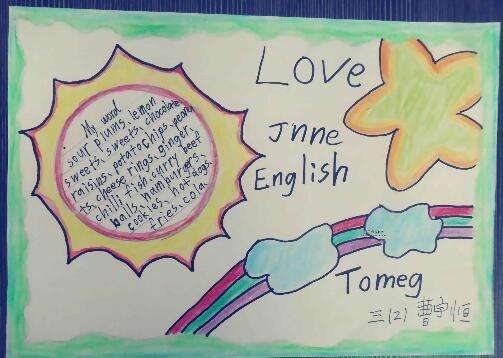 My word
sour plums、lemon
sweets、sweets、chocolate
raisins、potato chips、peanu
ts、cheese rings、ginger、
chilli fish curry beef
balls、hamburgers、
cookies、hot dogs、
fries、cola、
Love
Jnne
English
Tomeg
三(2) 曹宇恒